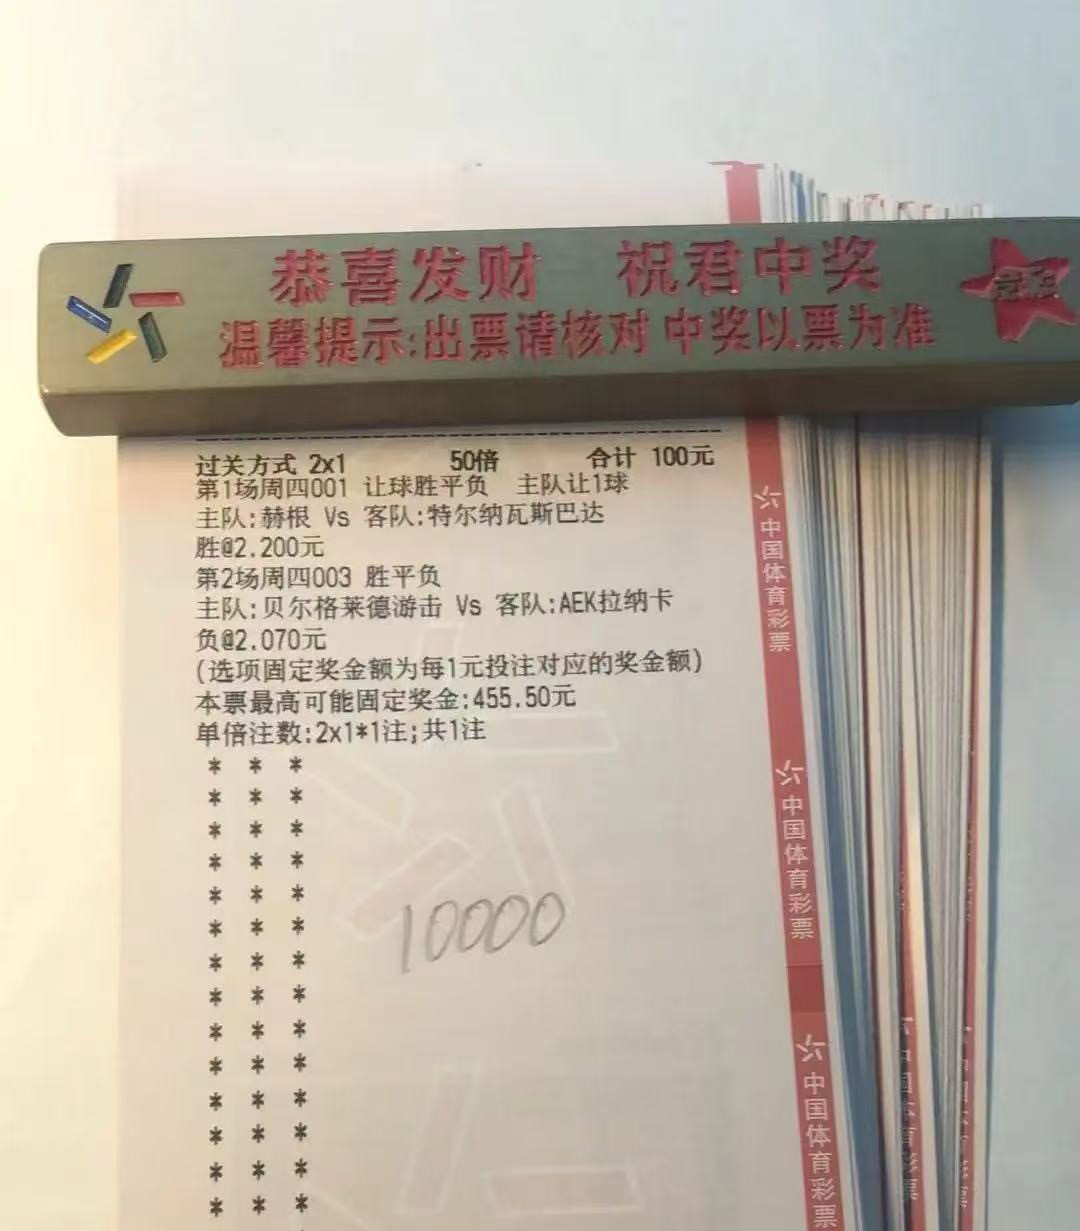 恭喜发财 祝君中奖
温馨提示:出票请核对 中奖以票为准
过关方式 2x1 50倍 合计 100元
第1场周四001 让球胜平负 主队让1球
主队:赫根 Vs 客队:特尔纳瓦斯巴达
胜@2.200元
第2场周四003 胜平负
主队:贝尔格莱德游击 Vs 客队:AEK拉纳卡
负@2.070元
(选项固定奖金额为每1元投注对应的奖金额)
本票最高可能固定奖金:455.50元
单倍注数:2x1*1注;共1注
* * *
* * *
* * *
* * *
* * *
* * *
* * *
* * *
* * *
* * *
* * *
* * *
* * *
* * *
10000
中国体育彩票
中国体育彩票
中国体育彩票